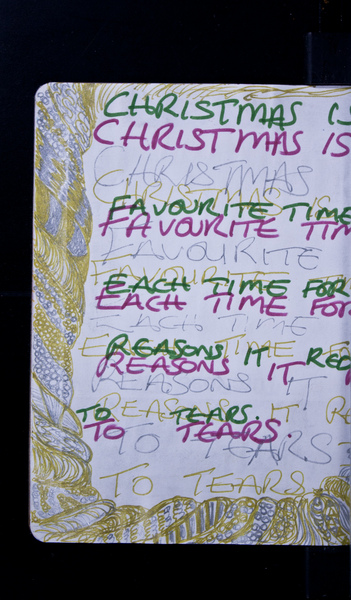 CHRISTMAS IS
CHRISTMAS IS
CHRISTMAS
CHRISTMAS IS
FAVOURITE TIME
FAVOURITE TIM
FAVOURITE
FAVOURITE
EACH TIME FOR
EACH TIME FOR
EACH TIME
EACH TIME
REASONS IT RED
REASONS IT
REASONS IT
REASONS IT
TO TEARS.
TO TEARS.
TO TEARS
TO TEARS